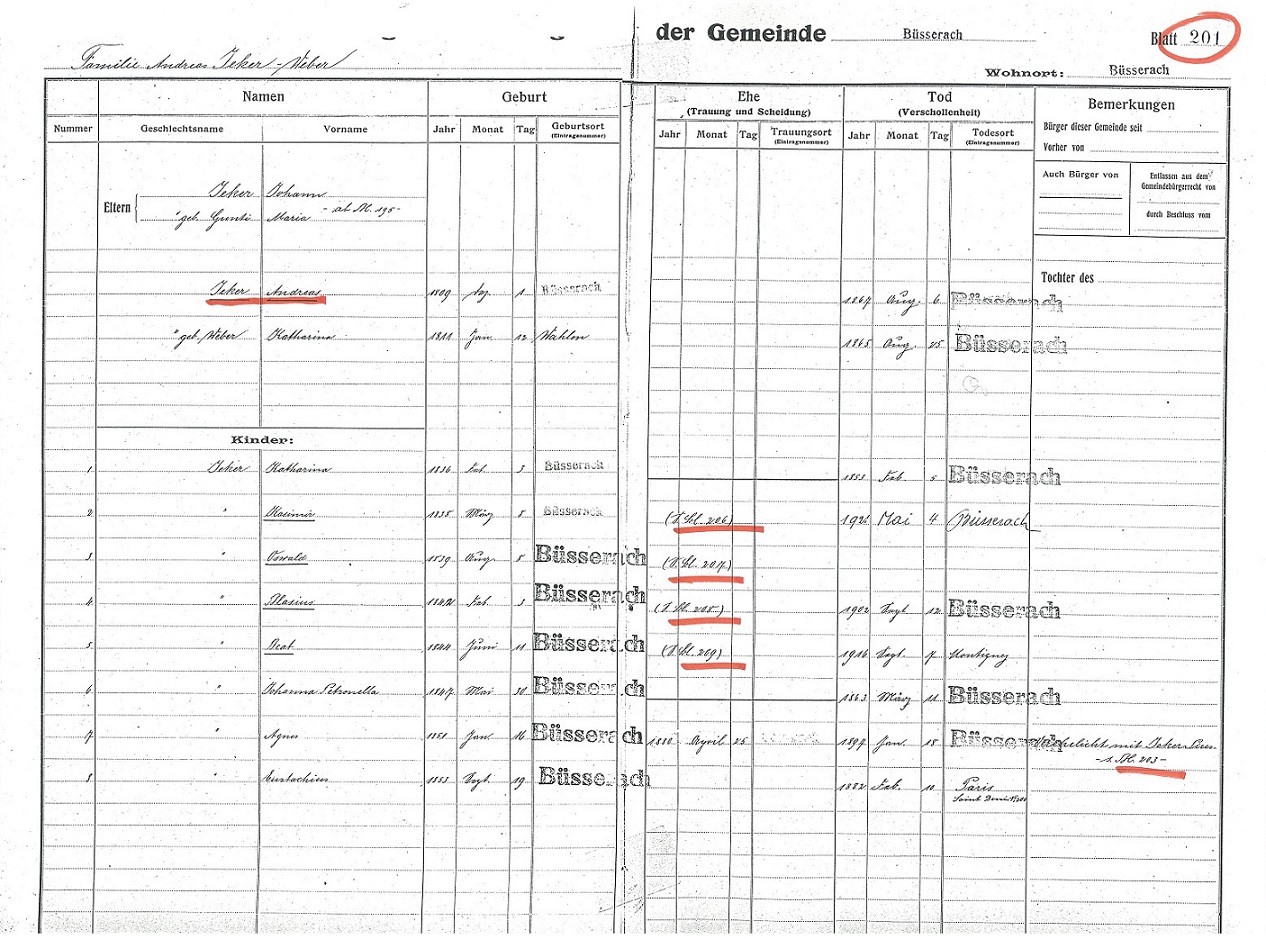 der Gemeinde Büsserach Blatt 201
Familie Andreas Jeker-Weber
Wohnort: Büsserach
Namen Geburt Ehe Tod Bemerkungen
(Trauung und Scheidung) (Verschollenheit)
Nummer Geschlechtsname Vorname Jahr Monat Tag Geburtsort Jahr Monat Tag Trauungsort Jahr Monat Tag Todesort
(Eintragsnummer) (Eintragsnummer) (Eintragsnummer)
Bürger dieser Gemeinde seit
Vorher von
Auch Bürger von
Entlassen aus dem Gemeindebürgerrecht von
durch Beschluss vom
Eltern Jeker Johann
" geb. Maria - ab Bl. 195 -
Tochter des
Jeker Andreas 1809 1 Büsserach 1867 Aug. 6 Büsserach
" geb. Weber Katharina 1811 Jan. 12 Wahlen 1865 Aug. 25 Büsserach
Kinder:
1 Jeker Katharina 1836 Feb. 3 Büsserach 1853 Feb. 5 Büsserach
2 Kasimir 1838 März 8 Büsserach (s. Bl. 206) Mai 4 Büsserach
3 " Oswald 1839 Aug. 8 Büsserach (s. Bl. 207)
4 " Blasius 1842 Feb. 3 Büsserach 1902 Sept. 12 Büsserach
5 " Beat 1844 Juni 11 Büsserach (s. Bl. 209) 1916 Sept. 7 Montigney
6 " Johanna Petronella 1847 Mai 30 Büsserach 1863 März 11 Büsserach
7 " Agnes 1851 Jan. 16 Büsserach 1880 April 25 1897 Jan. 18 Büsserach Verehelicht mit Jeker Pius
- s. Bl. 203 -
8 " Eustachius 1853 Sept. 19 Büsserach 1882 Feb. 10 Paris
Saint Denis